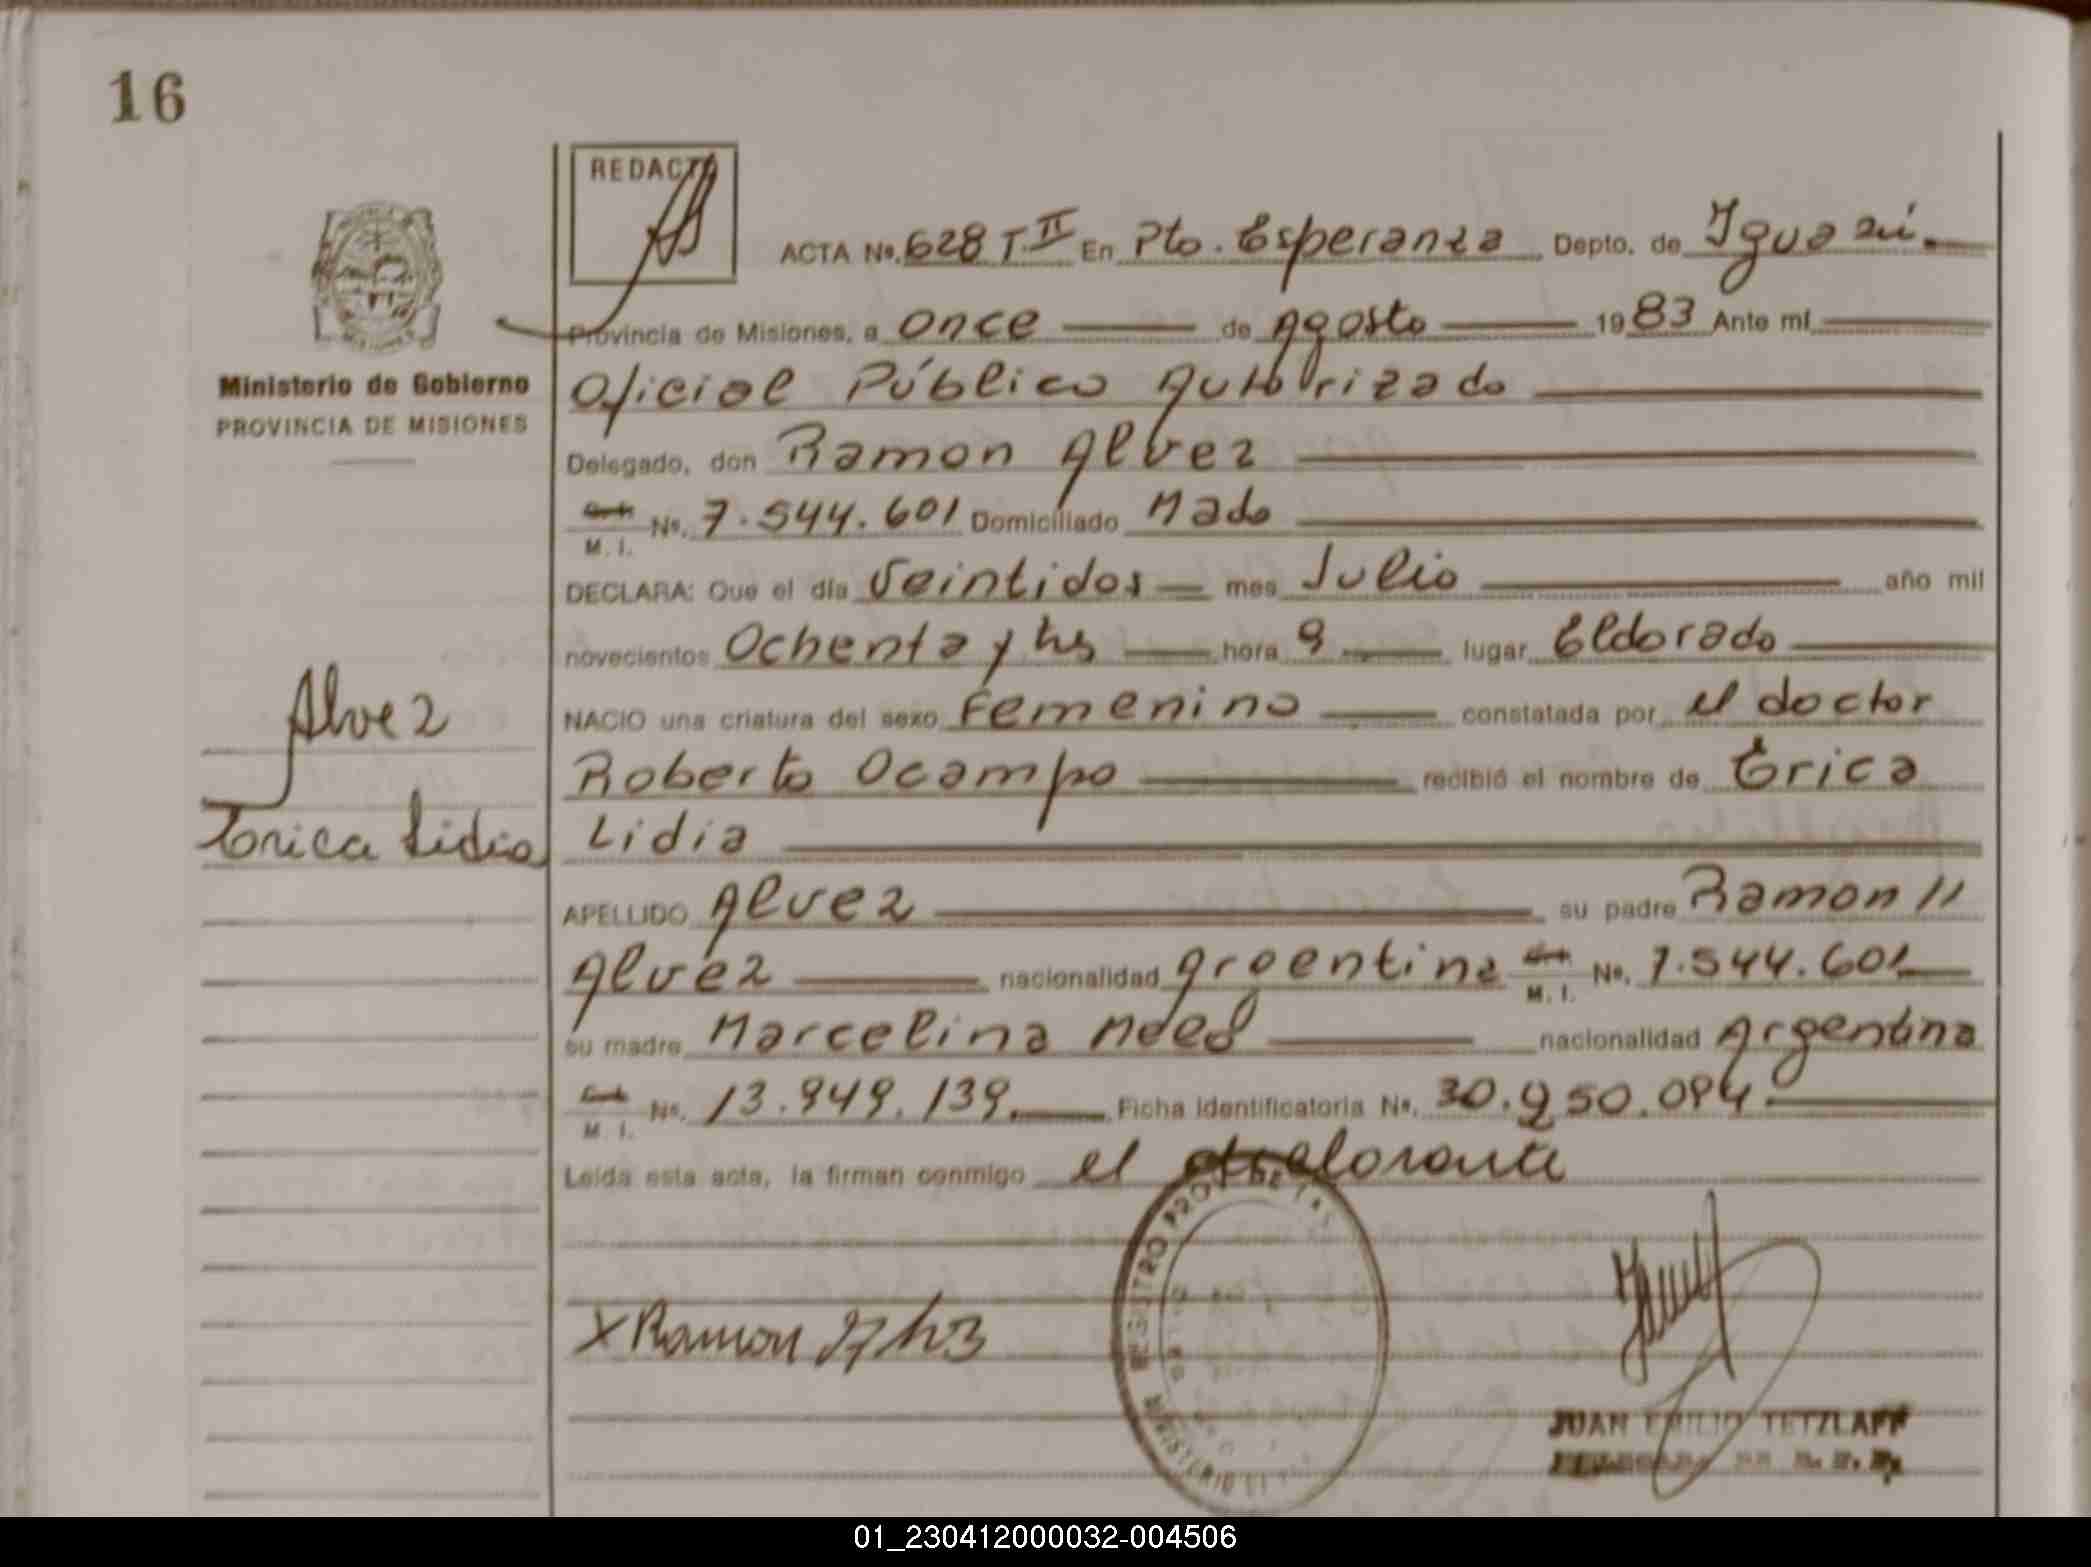 16
REDACTÓ
ACTA Nº. 628 T. II En Pto. Esperanza Depto. de Iguazú.
Provincia de Misiones, a once de Agosto 1983 Ante mí
Oficial Público Autorizado
Ministerio de Gobierno
PROVINCIA DE MISIONES
Delegado, don Ramon Alvez
M. I. Nº. 7.544.601 Domiciliado Mado
DECLARA: Que el día Veintidos mes Julio año mil
novecientos Ochenta y tres hora 9 lugar Eldorado
NACIO una criatura del sexo Femenino constatada por el doctor
Roberto Ocampo recibió el nombre de Erica
Lidia
Alvez
Erica Lidia
APELLIDO Alvez su padre Ramon //
Alvez nacionalidad Argentina M. I. Nº. 7.544.601
su madre Marcelina nacionalidad Argentina
M. I. Nº. 13.949.139. Ficha Identificatoria Nº. 30.950.094
Leída esta acta, la firman conmigo el declarante
X Ramon
REGISTRO PROV. DE LAS
MINISTERIO
JUAN EMILIO TETZLAFF
01_230412000032-004506